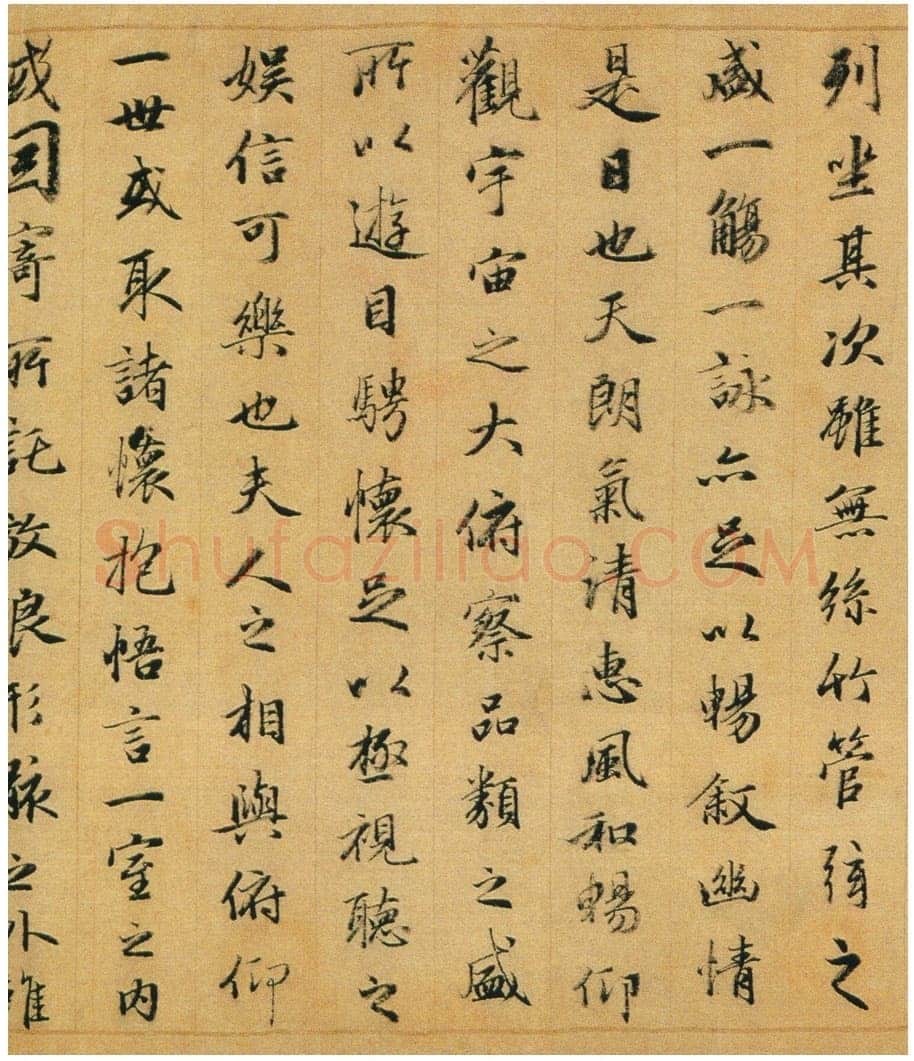 列坐其次雖無絲竹管弦之
盛一觴一詠亦足以暢敘幽情
是日也天朗氣清惠風和暢仰
觀宇宙之大俯察品類之盛
所以遊目騁懷足以極視聽之
娛信可樂也夫人之相與俯仰
一世或取諸懷抱悟言一室之內
或因寄所託放浪形骸之外雖
Shufaziliao.COM